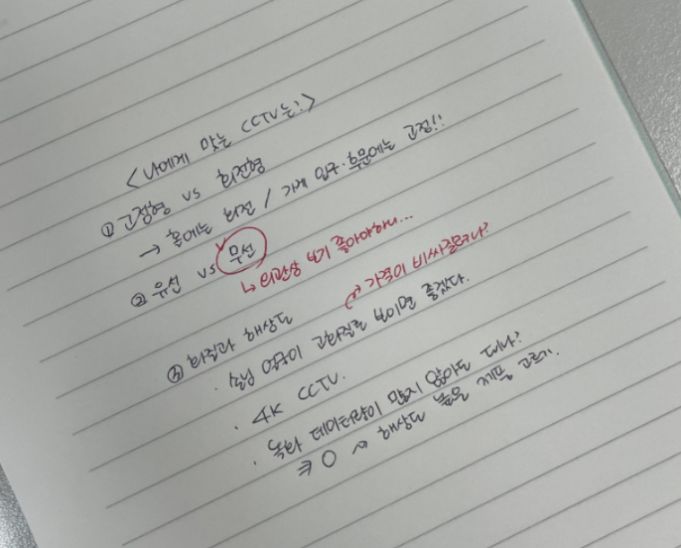 <나에게 맞는 CCTV는?>
① 고정형 vs 회전형
→ 홀에는 회전 / 가게 입구·후문에는 고정!!
② 유선 vs 무선
↳ 외관상 보기 좋아야하니...
③ 화질과 해상도
가격이 비싸질려나?
· 손님 얼굴이 고화질로 보이면 좋겠다.
· 4K CCTV.
· 녹화 데이터량이 많지 않아도 되나?
O ~ 해상도 높은 제품 고르기.